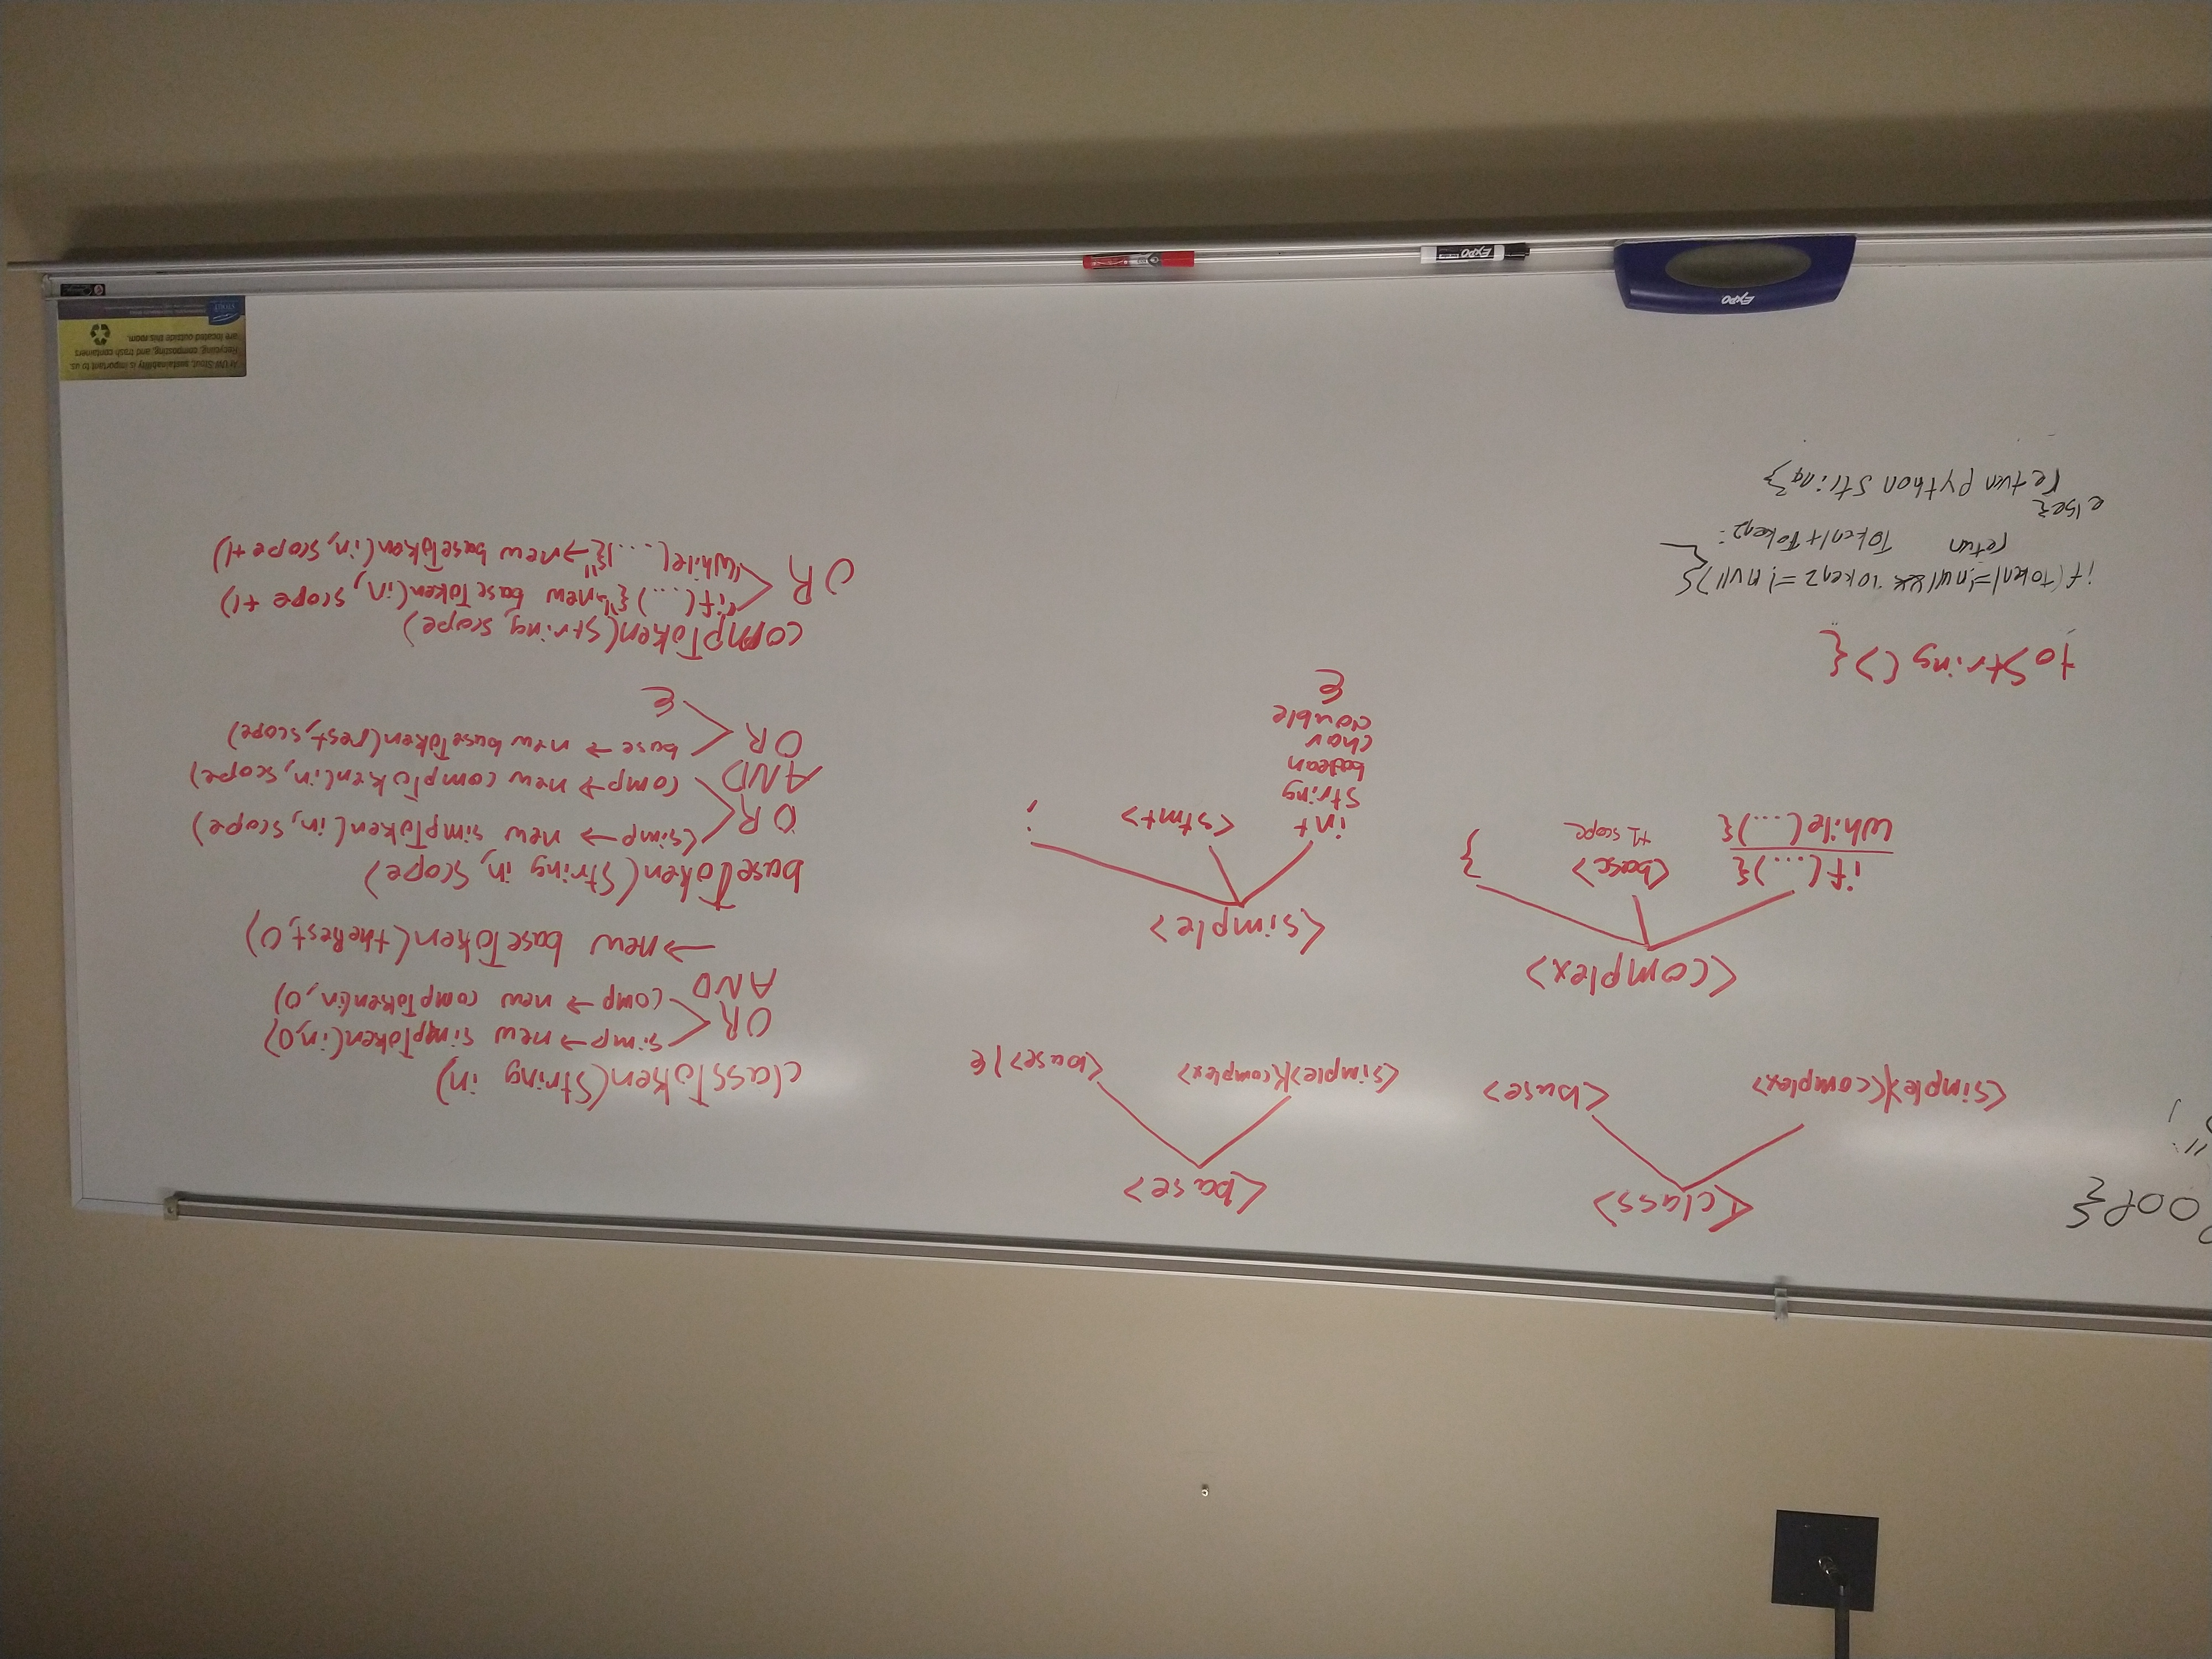 OOP{
";
<class>
<simple>|<complex>
<base>
<base>
<simple>|<complex>
<base>|ε
<complex>
if(...){
while(...){
<base>
+1 scope
}
<simple>
int
string
boolean
char
double
ε
<stmt>
;
toString(){
if(token1=!null && token2=!null){
return Token1+Token2;
else{
return python string}
classToken(String in)
OR
simp→new simpToken(in,0)
comp→new compToken(in,0)
AND
→new baseToken(theRest,0)
baseToken(String in, scope)
OR
simp→new simpToken(in,scope)
comp→new compToken(in,scope)
AND
OR
base→new baseToken(rest,scope)
ε
compToken(string, scope)
OR
"if(...){"→new baseToken(in, scope +1)
"while(...){"→new baseToken(in, scope+1)
At UW-Stout, sustainability is important to us.
Recycling, composting, and trash containers
are located outside this room.
STOUT
EXPO
EXPO